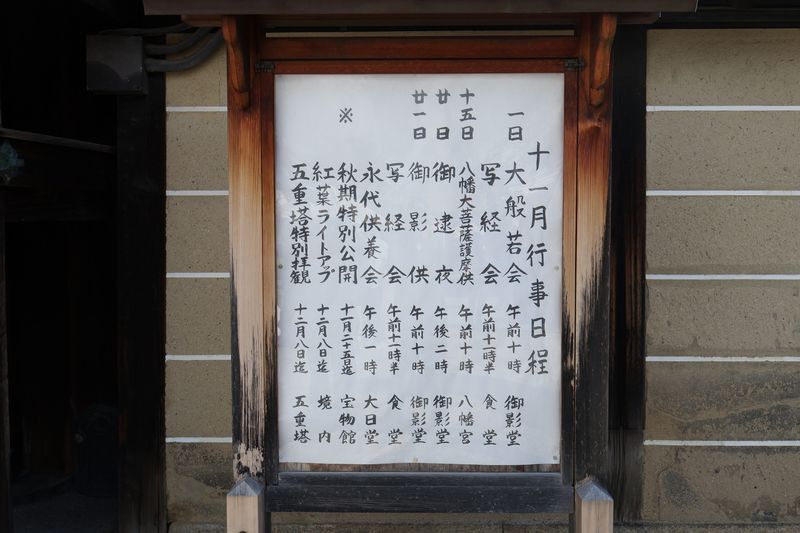 十一月行事日程
一日 大般若会 午前十時 御影堂
写経会 午前十一時半 食堂
十五日 八幡大菩薩護摩供 午前十時 八幡宮
廿日 御逮夜 午後二時 御影堂
廿一日 御影供 午前十時 御影堂
写経会 午前十一時半 食堂
永代供養会 午後一時 大日堂
※ 秋期特別公開 十一月二十五日迄 宝物館
紅葉ライトアップ 十二月八日迄 境内
五重塔特別拝観 十二月八日迄 五重塔